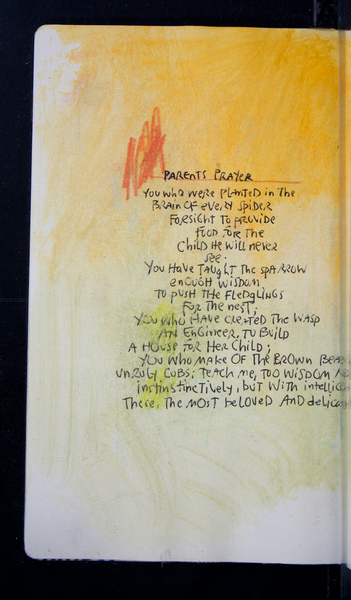 PARENTS PRAYER
You who were planted in The
BRain OF every spider
Forsight To provide
Food for The
Child He will never
see.
You Have Taught The spARROW
enough wisdom
To push THe Fledglings
For The nest;
You who HAVE created The WASP
AN EngineeR, TO Build
A House for Her Child;
You who make OF THe BRown
UNRuly Cubs; Teach me, TOO WisDom
instinstinctively, but With
These, The most beloved And